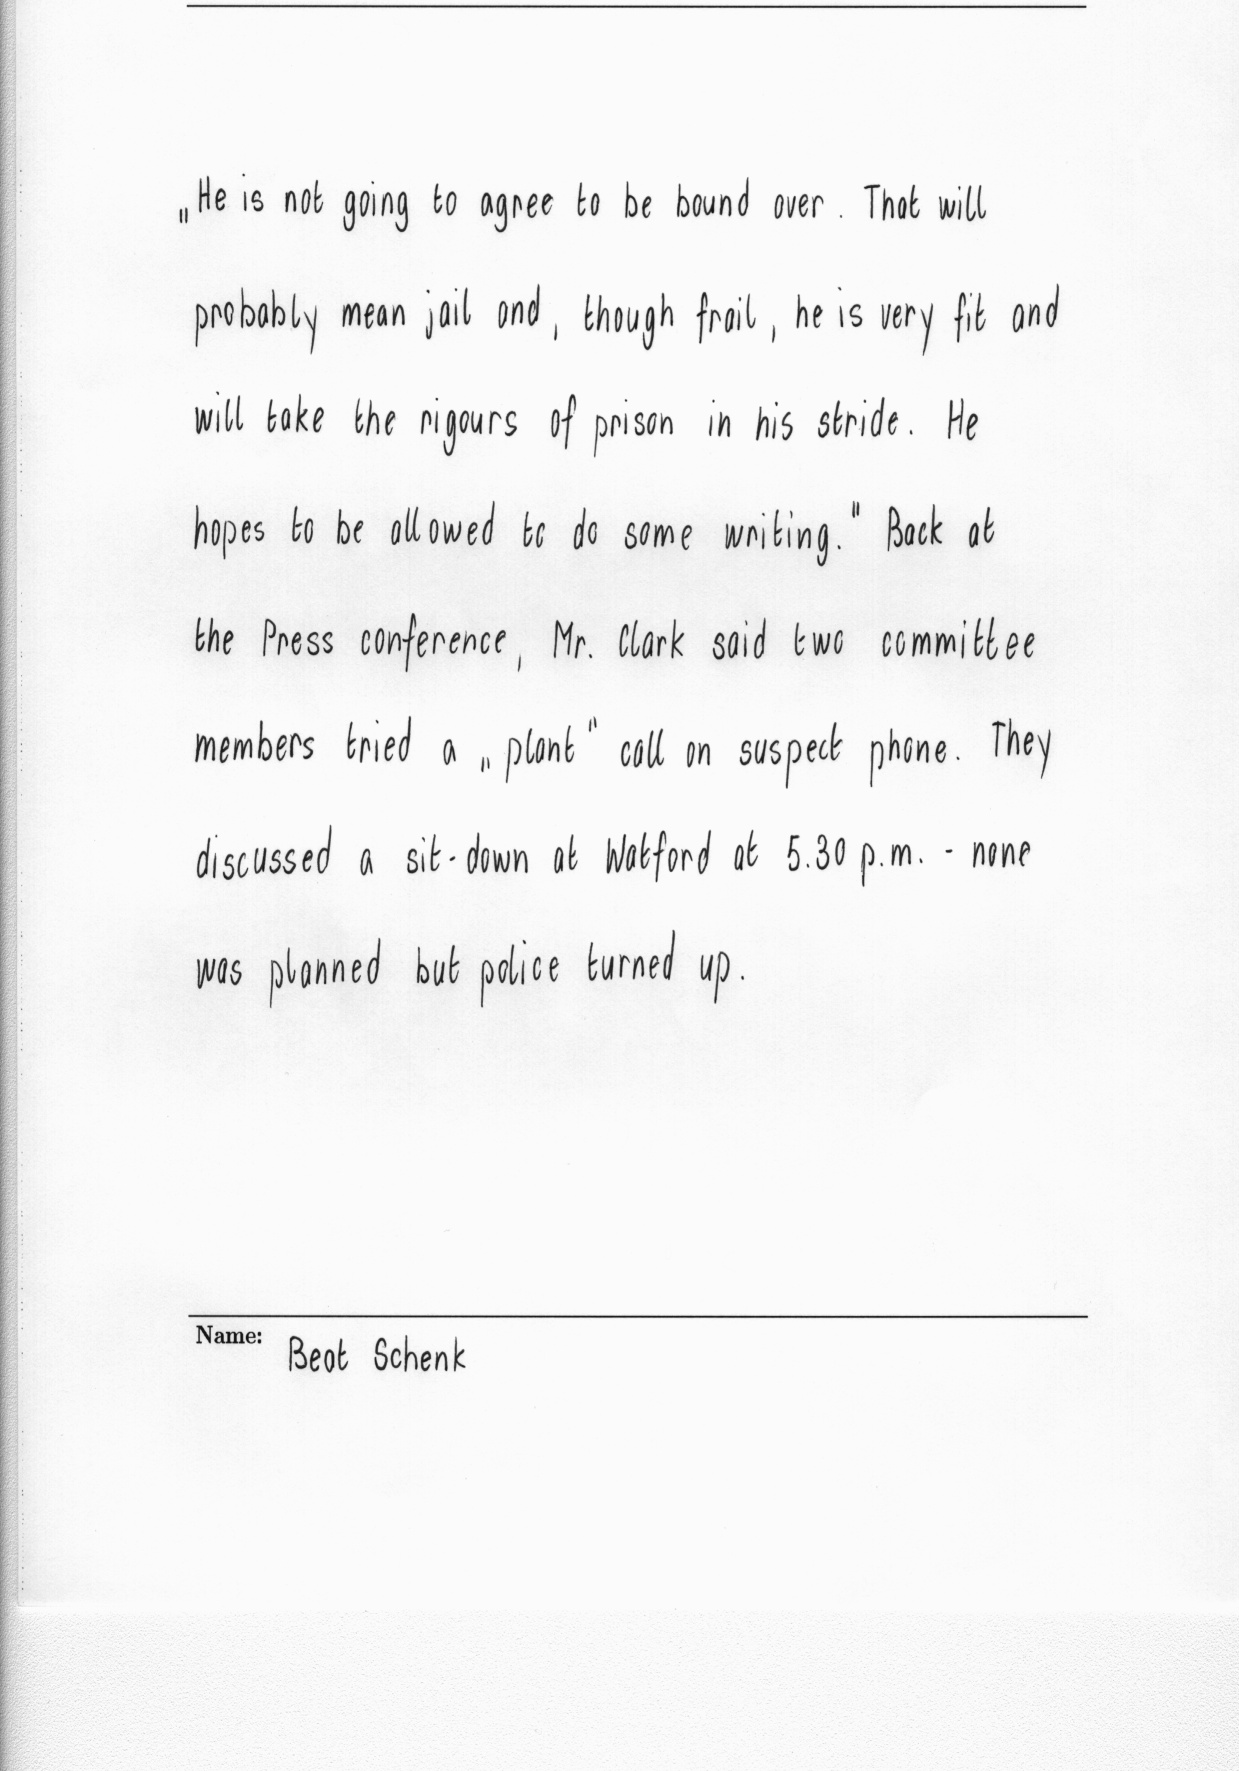 „He is not going to agree to be bound over. That will
probably mean jail and, though frail, he is very fit and
will take the rigours of prison in his stride. He
hopes to be allowed to do some writing." Back at
the Press conference, Mr. Clark said two committee
members tried a „plant" call on suspect phone. They
discussed a sit-down at Watford at 5.30 p.m. - none
was planned but police turned up.
Name: Beat Schenk